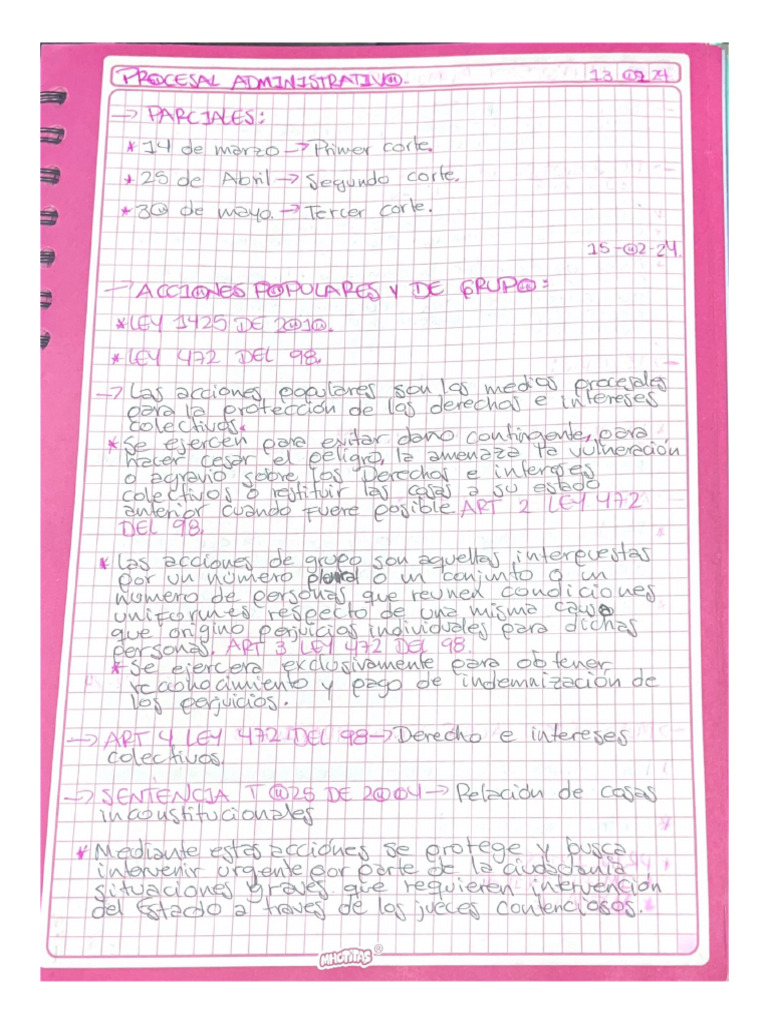 PROCESAL ADMINISTRATIVO. 13 02 24
→ PARCIALES:
* 14 de marzo → Primer corte.
* 25 de Abril → Segundo corte.
* 30 de mayo. → Tercer corte.
15-02-24.
→ ACCIONES POPULARES Y DE GRUPO:
* LEY 1425 DE 2010.
* LEY 472 DEL 98.
→ Las acciones populares son los medios procesales
para la protección de los derechos e intereses
colectivos.
* Se ejercen para evitar daño contingente, para
hacer cesar el peligro, la amenaza la vulneración
o agravio sobre los Derechos e intereses
colectivos o restituir las cosas a su estado
anterior cuando fuere posible ART 2 LEY 472
DEL 98.
* Las acciones de grupo son aquellas interpuestas
por un número plural o un conjunto o un
número de personas que reunen condiciones
uniformes respecto de una misma causa
que origino perjuicios individuales para dichas
personas. ART 3 LEY 472 DEL 98.
* Se ejercera exclusivamente para obtener
reconocimiento y pago de indemnización de
los perjuicios.
→ ART 4 LEY 472 DEL 98 → Derecho e intereses
colectivos.
→ SENTENCIA T 025 DE 2004 → Relación de cosas
inconstitucionales
* Mediante estas acciones se protege y busca
intervenir urgente por parte de la ciudadanía
situaciones graves que requieren intervención
del Estado a traves de los jueces contenciosos.
MHOTITAS